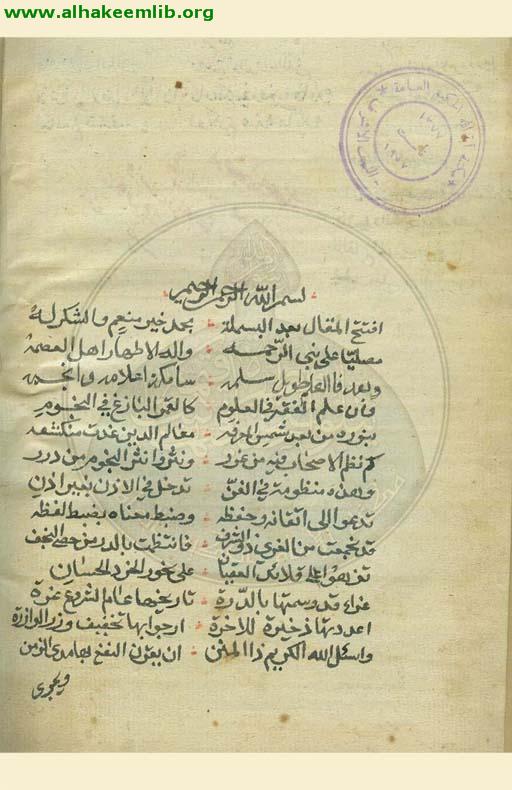 www.alhakeemlib.org
مكتبة العامة
بسم الله الرحمن الرحيم
افتتح المقال بعد البسملة بحمد خير منعم والشكر له
مصليا على نبي الرحمه واله الاطهار اهل العصمه
وبعد فالعلم طويل سلمه سامكة اعلامه وانجمه
وان علم الفقه في العلوم كالقمر البازغ في النجوم
بنوره من بعد شمس المعرفه معالم الدين غدت منكشفه
كم نظم الاصحاب فيه من غرر ونثروا نثر النجوم من درر
وهذه منظومة في الفن تدخل في الاذن بغير اذن
تدعوا الى اتقانه وحفظه وضبط معناه بضبط لفظه
قد نجمت من الغري ذي الشرف فانتظمت بالدر من حصى النجف
تزهو على قلائد العقيان على نحور الخرد الحسان
غراء قد وسمتها بالدرة تاريخها عام الشروع غرة
اعددتها ذخيرة للاخرة ارجو بها تخفيف وزر الوازرة
واسئل الله الكريم ذا المنن ان يقرن النفع بها مدى الزمن
ويجزى